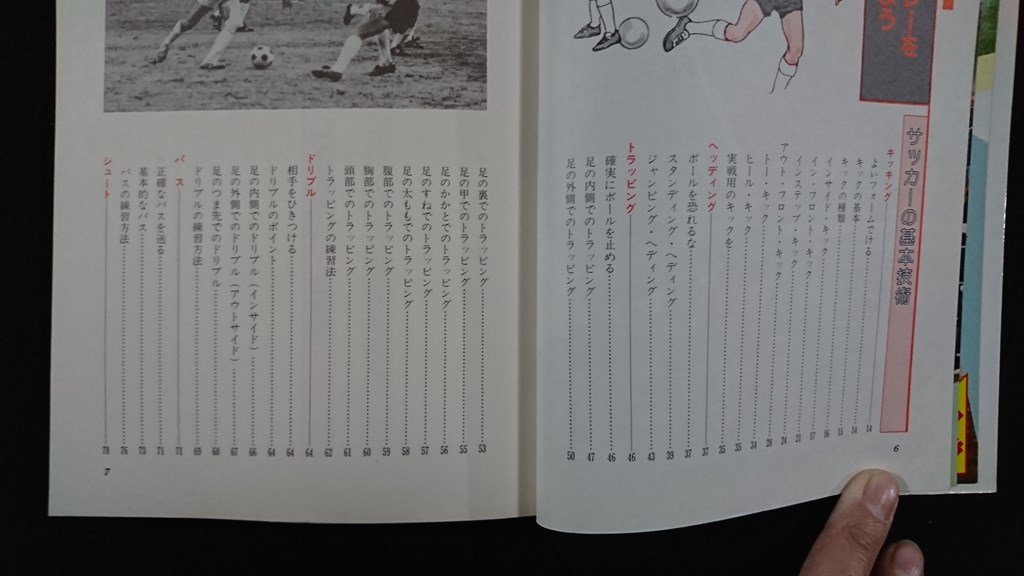 ーを
う
サッカーの基本技術
キッキング 14
よいフォームでける 14
キックの基本 15
キックの種類 16
インサイド・キック 17
イン・フロント・キック 21
インステップ・キック 24
アウト・フロント・キック 28
トー・キック 34
ヒール・キック 35
実戦用のキックを 35
ヘッディング 37
ボールを恐れるな 37
スタンディング・ヘディング 39
ジャンピング・ヘディング 43
トラッピング 46
確実にボールを止める 46
足の内側でのトラッピング 47
足の外側でのトラッピング 50
6
足の裏でのトラッピング 53
足の甲でのトラッピング 55
足のかかとでのトラッピング 56
足のすねでのトラッピング 57
足の太ももでのトラッピング 58
腹部でのトラッピング 59
胸部でのトラッピング 60
頭部でのトラッピング 61
トラッピングの練習法 62
ドリブル 64
相手をひきつける 64
ドリブルのポイント 64
足の内側でのドリブル（インサイド） 66
足の外側でのドリブル（アウトサイド） 67
足のつま先でのドリブル 68
ドリブルの練習方法 69
パス 71
正確なパスを送る 71
基本的なパス 73
パスの練習方法 76
シュート 78
7